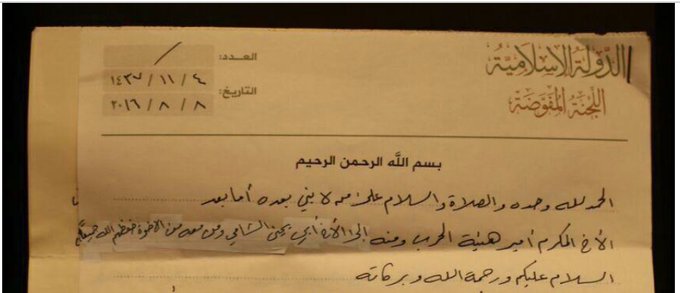 الدولة الإسلامية
اللجنة المفوضة
العدد: /
التاريخ: ٤ / ١١ / ١٤٣٧
٨ / ٨ / ٢٠١٦
بسم الله الرحمن الرحيم
الحمد لله وحده والصلاة والسلام على من لا نبي بعده أما بعد
الأخ المكرم أمير هيئة الحرب ومنه إلى الأخ أبي يحيى الشامي ومن معه من الأخوة حفظهم الله جميعا
السلام عليكم ورحمة الله وبركاته